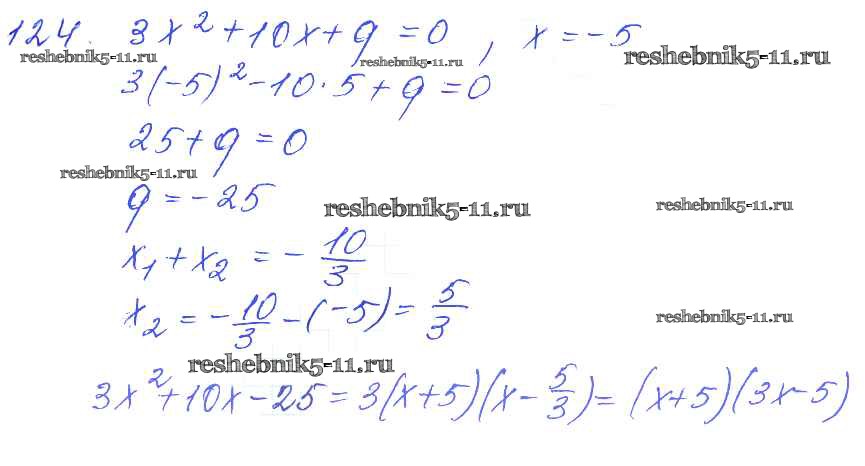 124. 3x² + 10x + q = 0, x = -5
reshebnik5-11.ru reshebnik5-11.ru reshebnik5-11.ru
3(-5)² - 10 · 5 + q = 0
25 + q = 0
reshebnik5-11.ru
q = -25
reshebnik5-11.ru reshebnik5-11.ru
x₁ + x₂ = - 10/3
x₂ = - 10/3 - (-5) = 5/3
reshebnik5-11.ru
reshebnik5-11.ru
3x² + 10x - 25 = 3(x+5)(x - 5/3) = (x+5)(3x-5)